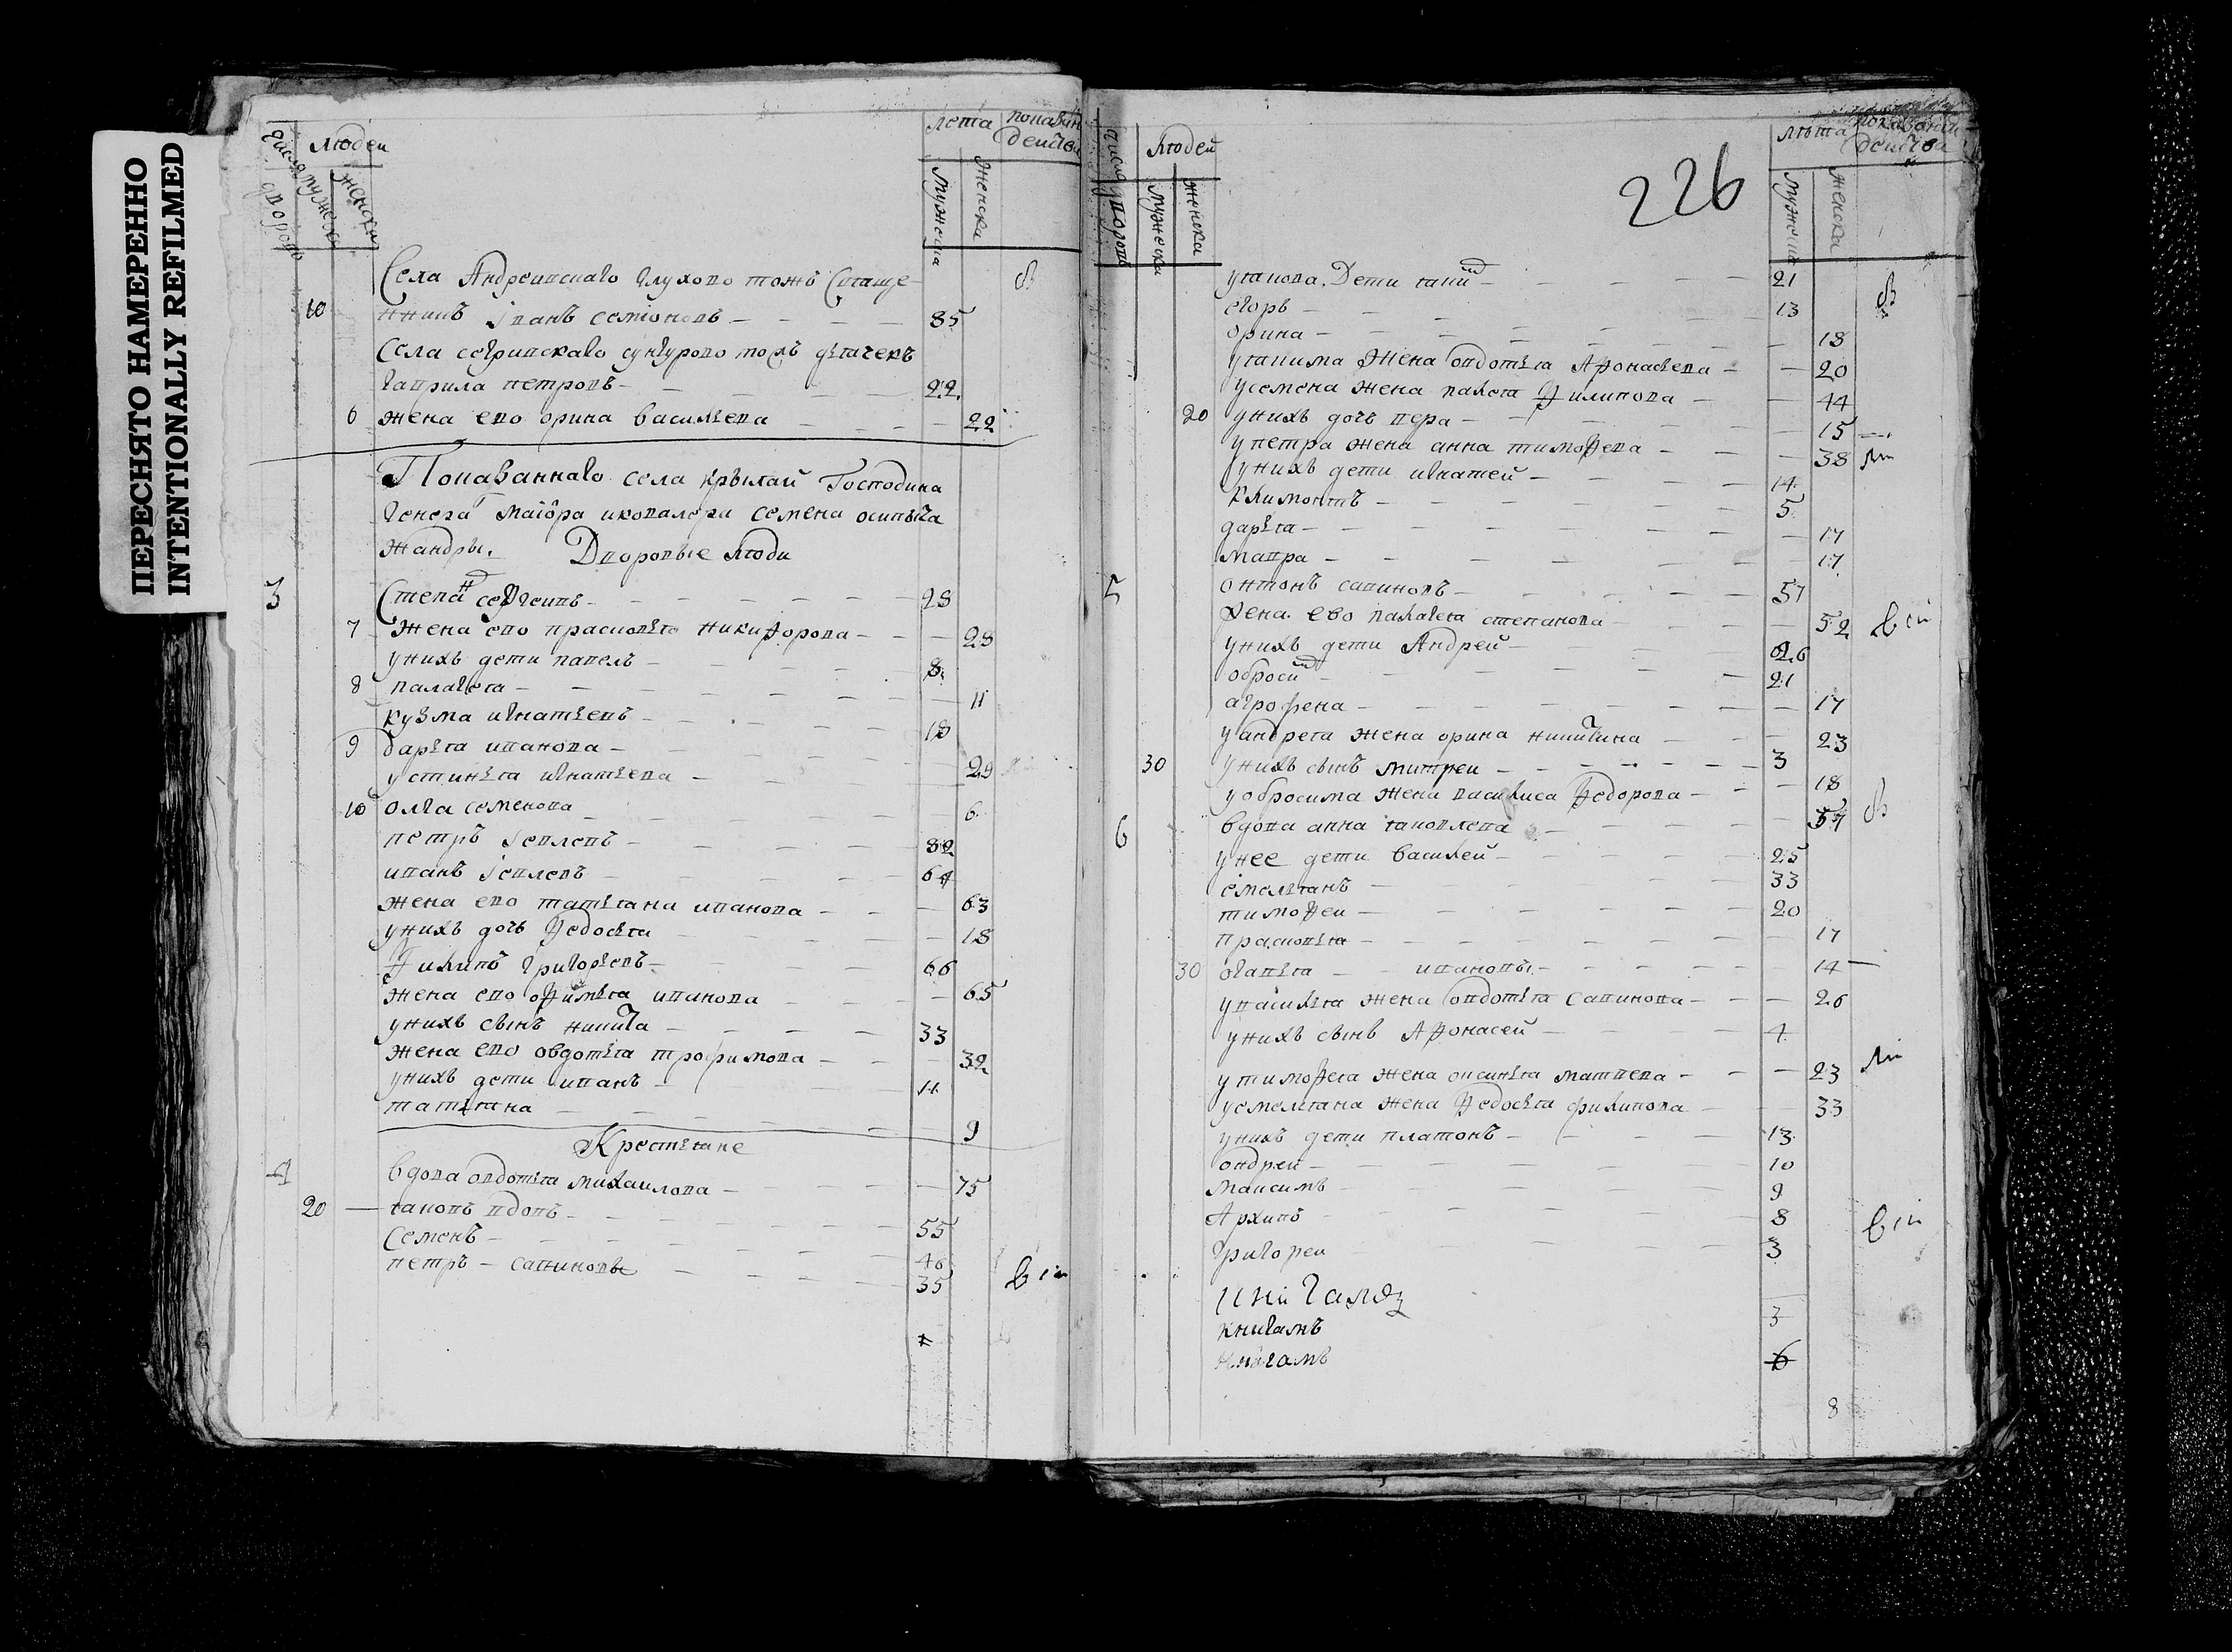 ПЕРЕСНЯТО НАМЕРЕННО
INTENTIONALLY REFILMED
Число дворовъ
Людеи
мужеска
женска
Лета
мужеска
женска
Села Андреивскаго Глухово тожъ Свяще
10 нникъ Iванъ семiоновъ 85
Гаврила петровъ 22
6 жена ево орина васильева 22
Показаннаго села крылаи Господина
Генера Маiора и ковалера семена осипыча
Жандры. Дворовые люди
3 Степанъ сергеивъ 28
7 жена ево прасковья никифорова 28
унихъ дети павелъ 8
8 палагея 11
кузма игнатьевъ 18
9 дарья иванова
устинья игнатьева 29
10 олга семенова 6
петръ Iевлевъ 82
иванъ Iевлевъ 64
жена ево татьяна иванова 63
унихъ дочь федосья 18
Филипъ григорьевъ 66
жена ево офимья иванова 65
унихъ сынъ никита 33
жена ево овдотья трофимова 32
унихъ дети иванъ 11
татьяна 9
Крестьяне
4 вдова овдотья михаилова 75
20 яковъ вдовъ 55
Семенъ 46
петръ савиновы 35
226
Число дворовъ
Людей
мужеска
женска
Лѣта
мужеска
женска
уякова. Дети якимъ 21
егоръ 13
орина 18
уякима жена овдотья Афонасьева 20
усемена жена палагея Филипова 44
20 унихъ дочь вера 15
упетра жена анна тимофева 38
унихъ дети игнатей 14
климонтъ 5
дарья 17
мавра 17
5 онтонъ савиновъ 57
жена ево палагея степанова 52
унихъ дети Андрей 26
обросимъ 21
агрофена 17
уандрея жена орина никитина 23
30 унихъ сынъ митреи 3
уобросима жена василиса Федорова 18
6 вдова анна яковлева 57
унее дети василей 25
емельянъ 33
тимофеи 20
прасковья 17
30 огапья ивановы 14
увасилья жена овдотья савинова 26
унихъ сынъ Афонасей 4
утимофея жена оксинья матвева 23
уемельяна жена Федосья филипова 33
унихъ дети платонъ 13
ондреи 10
максимъ 9
Архипъ 8
григореи 3
книгамъ 3
6
8